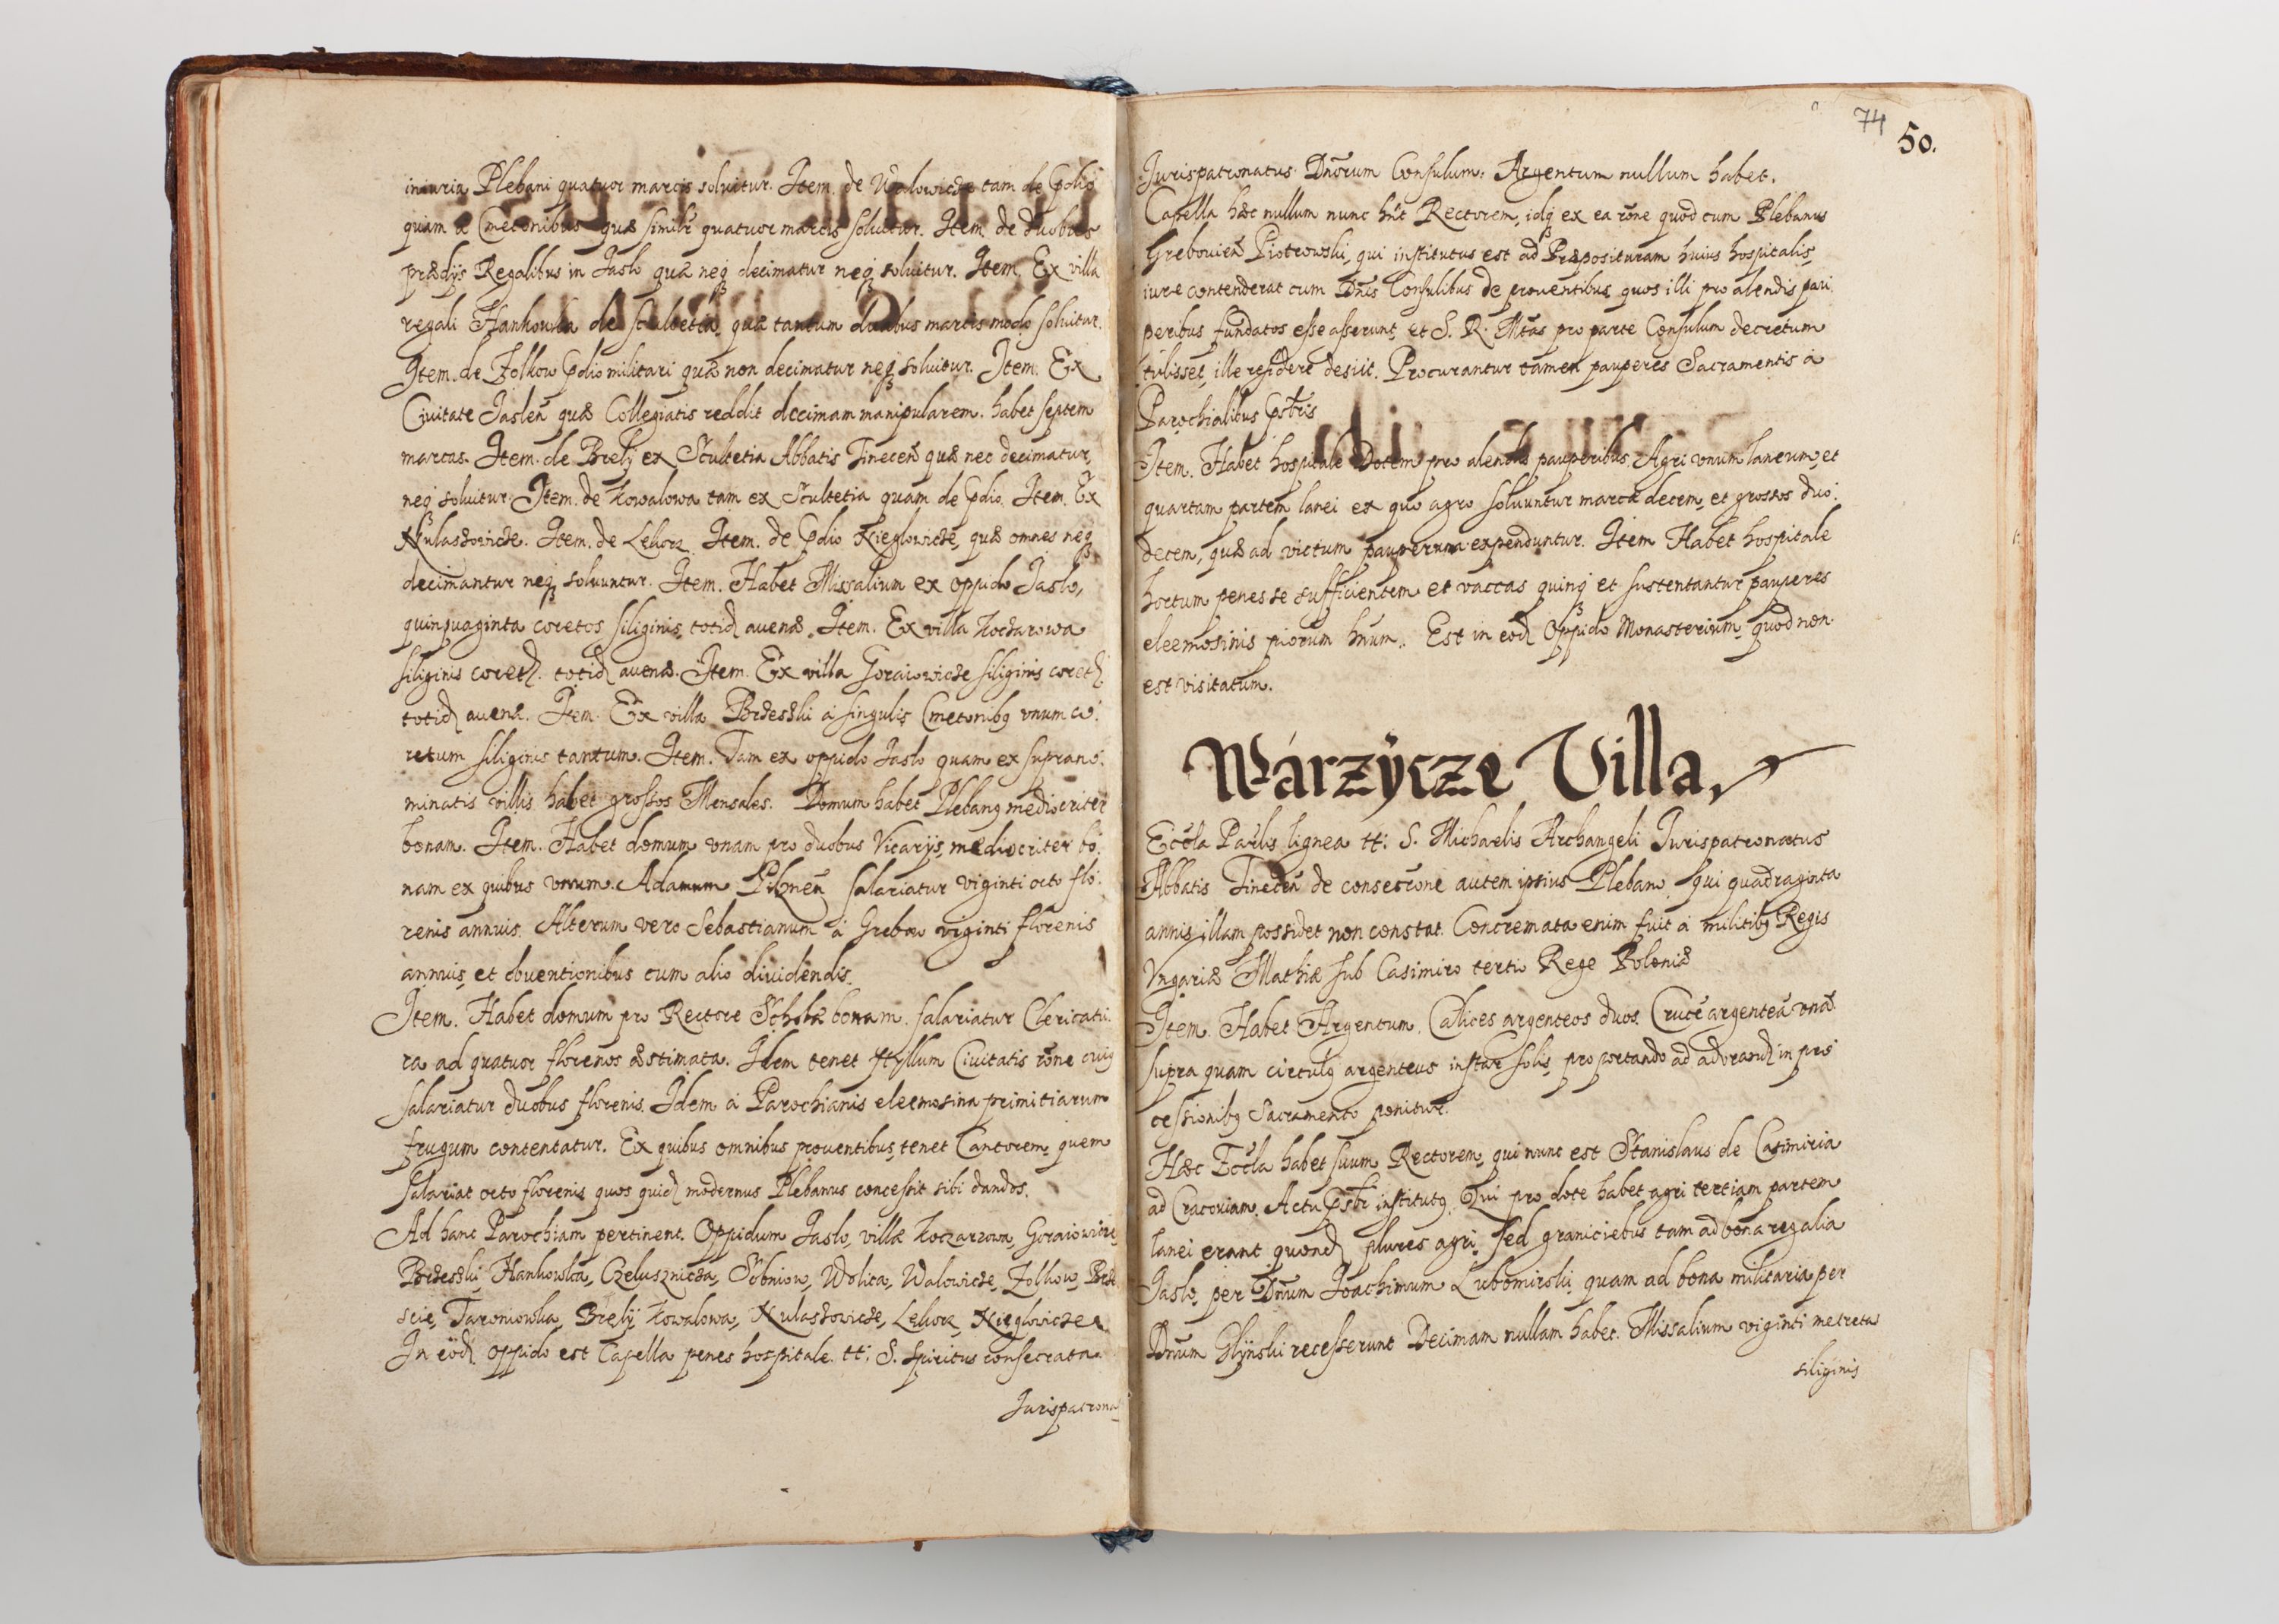 iniuria Plebani quatuor marcis soluitur. Item. de Walowicze tam de Pdio
quam a Cmetonibus quæ similr quatuor marcis soluitur. Item. de duobus
prædijs Regalibus in Jaslo quæ neq decimatur neq soluitur. Item. Ex villa
regali Hankowka de scultetia, quæ tantum duabus marcis modo soluitur.
Item. de Zolkow Pdio militari quæ non decimatur neq soluitur. Item. Ex
Ciuitate Jaslen̄ quæ Collegiatis reddit decimam manipularem. habet septem
marcas. Item. de Brelÿ ex Scultetia Abbatis Tinecen̄ quæ nec decimatur,
neq soluitur. Item. de Kowalowa tam ex Scultetia quam de Pdio. Item. Ex
Kulaszowicze. Item. de Lehorz. Item. de Pdio Nieglowicze, quæ omnes neq
decimantur neq soluuntur. Item. Habet Missalium ex oppido Jaslo,
quinquaginta coretos siliginis, totid auenæ. Item. Ex villa Koczarowa
siliginis coret. totid auenæ. Item. Ex villa Goraiowicze siliginis coret.
totid auenæ. Item. Ex villa Brzeszki à singulis Cmetonibq vnum co:
retum siliginis tantum. Item. Tam ex oppido Jaslo quam ex supranō:
minatis villis habet grossos Mensales. Domum habet Plebanq mediocriter
bonam. Item. Habet domum vnam pro duobus Vicarijs, mediocriter bo:
nam ex quibus vnum Adamum Pilznen̄ salariatur viginti octo flo:
renis annuis. Alterum vero Sebastianum à Grebow viginti florenis
annuis, et obuentionibus cum alio diuidendis.
Item. Habet domum pro Rectore Scholæ bonam. salariatur Clericatu:
ra ad quatuor florenos æstimata. Idem tenet styllum Ciuitatis rōne cuiq
salariatur duobus florenis. Idem à Parochianis eleemosina primitiarum
frugum contentatur. Ex quibus omnibus prouentibus, tenet Cantorem, quem
salariat octo florenis, quos quid modernus Plebanus concessit sibi dandos.
Ad hanc Parochiam pertinent. Oppidum Jaslo, villæ Koczarzowa, Goraiowicze,
Brzeszki, Hankowka, Czelusznicza, Sobniow, Wolica, Walowicze, Zolkow, Brze
scie, Tarnowka, Brelÿ, Kowalowa, Kulaszowicze, Lehorz, Nieglowicze.
In eōd oppido est Capella penes hospitale. tt: S. Spiritus consecrata.
Jurispatrona
74
50.
Jurispatronatus Dnōrum Consulum. Argentum nullum habet.
Capella hæc nullum nunc hnt Rectorem, idq ex ea rōne quod cum Plebanus
Greboviēn Piotrowski, qui institutus est ad Præposituram huius hospitalis,
iure contenderat cum Dnis Consulibus de prouentibus, quos illi pro alendis pau:
peribus fundatos esse asserunt, et S. R. Mtas pro parte Consulum decretum
tulisset, ille residere desiit. Procurantur tamen pauperes Sacramentis à
Parochialibus Psbtris
Item. Habet hospitale Dotem pro alendis pauperibus. Agri vnum laneum, et
quartam partem lanei ex quo agro soluuntur marcæ decem, et grossos duo:
decem, quæ ad victum pauperum expenduntur. Item Habet hospitale
hortum penes se sufficientem et vaccas quinq et sustentantur pauperes
eleemosinis piorum hnum. Est in eōd Oppido Monasterium, quod non
est visitatum.
Wárzÿcze Villa.
Eccla Parlis lignea tt: S. Michaelis Archangeli Jurispatronatus
Abbatis Tinecen̄ de consecrone autem ipsius Plebano qui quadraginta
annis illam possidet non constat. Concremata enim fuit à militibq Regis
Vngariæ Mathiæ sub Casimiro tertio Rege Poloniæ
Item. Habet Argentum. Calices argenteos duos. Crucē argenteā vnā
supra quam circulq argenteus instar solis, pro portando ad adorand in pro
cessionibq Sacramento ponitur.
Hæc Eccla habet suum Rectorem, qui nunc est Stanislaus de Casimiria
ad Cracoviam. Actu Psbtr institutq. Qui pro dote habet agri tertiam partem
lanei erant quond plures agri, sed graniciebus tam ad bona regalia
Jaslo, per Dnum Joachimum Lubomirski, quam ad bona militaria per
Dnum Glÿnski recesserunt. Decimam nullam habet. Missalium viginti metretas
siliginis